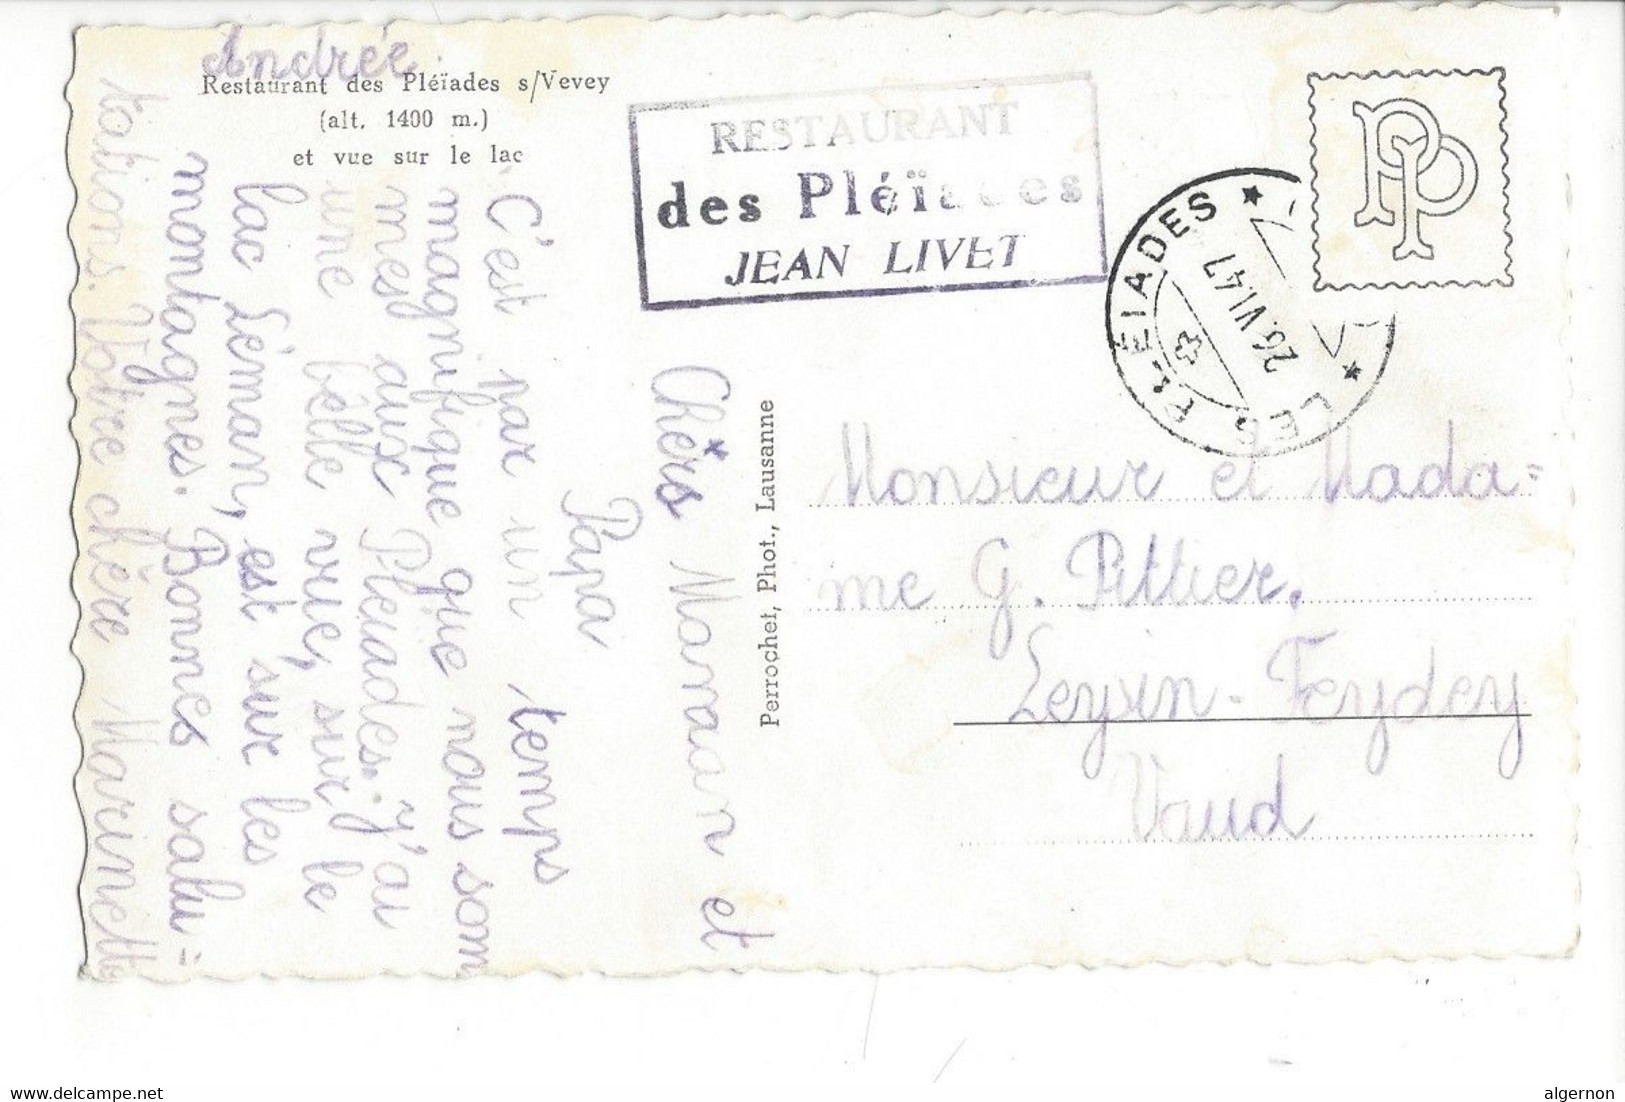 Restaurant des Pléïades s/Vevey
(alt. 1400 m.)
et vue sur le lac
RESTAURANT
des Pléïades
JEAN LIVET
LES PLÉIADES
26.VI.47
PP
Perrochet, Phot., Lausanne
Chèrs Maman et
Papa
C'est par un temps
magnifique que nous som
mes aux Pleiades. J'ai
une bèlle vue, sur le
lac Léman, est sur les
montagnes. Bonnes salu=
tations. Vôtre chère Marinette
Andrée.
Monsieur et Mada=
me G. Pittier.
Leysin-Feydey
Vaud
www.delcampe.net
algernon